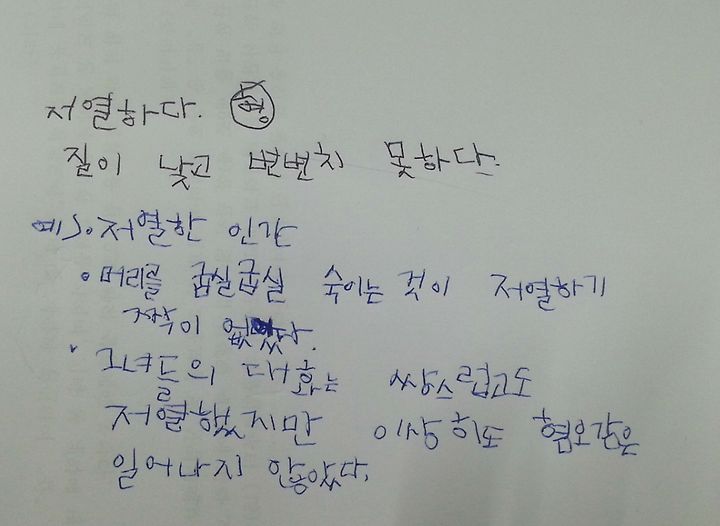 저열하다. 형
질이 낮고 변변치 못하다.
예). 저열한 인간
• 머리를 굽실굽실 숙이는 것이 저열하기
짝이 없었다.
• 그녀들의 대화는 쌍스럽고도
저열했지만 이상히도 혐오감은
일어나지 않았다.